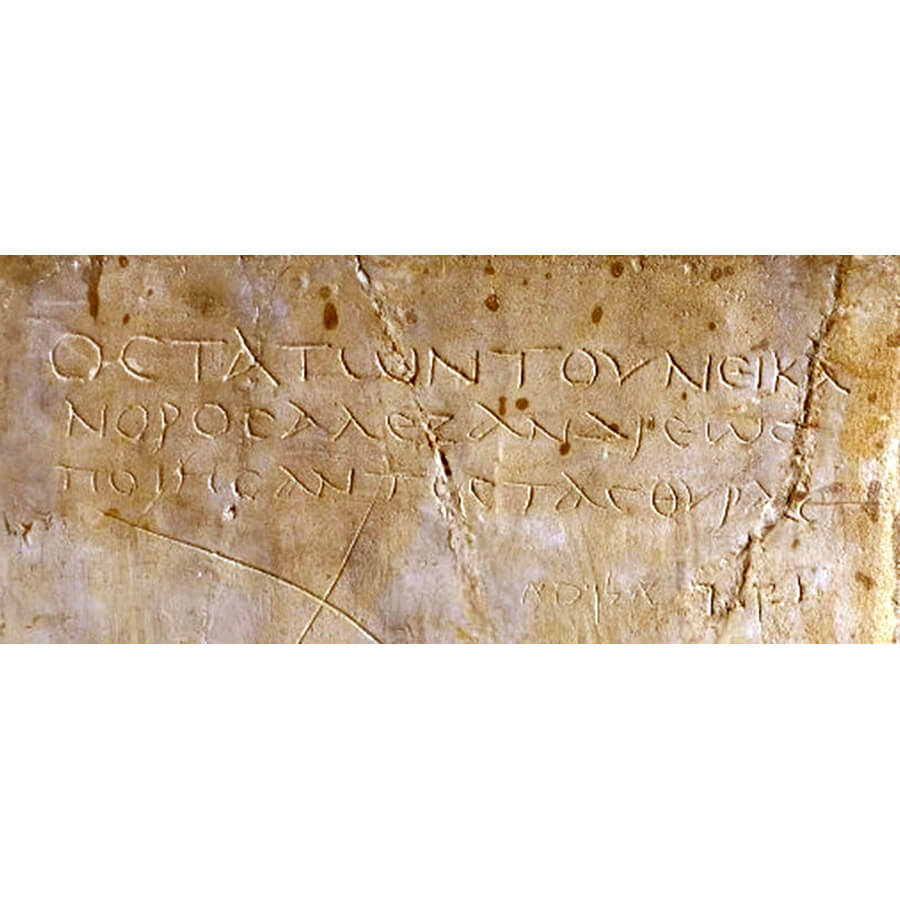 ΟϹΤΑΤΩΝΤΟΥΝΕΙΚΑ
ΝΟΡΟϹΑΛΕΞΑΝΔΡΕΩϹ
ΠΟΙΗϹΑΝΤΟϹΤΑϹΘΥΡΑϹ
נקנר אלכשא